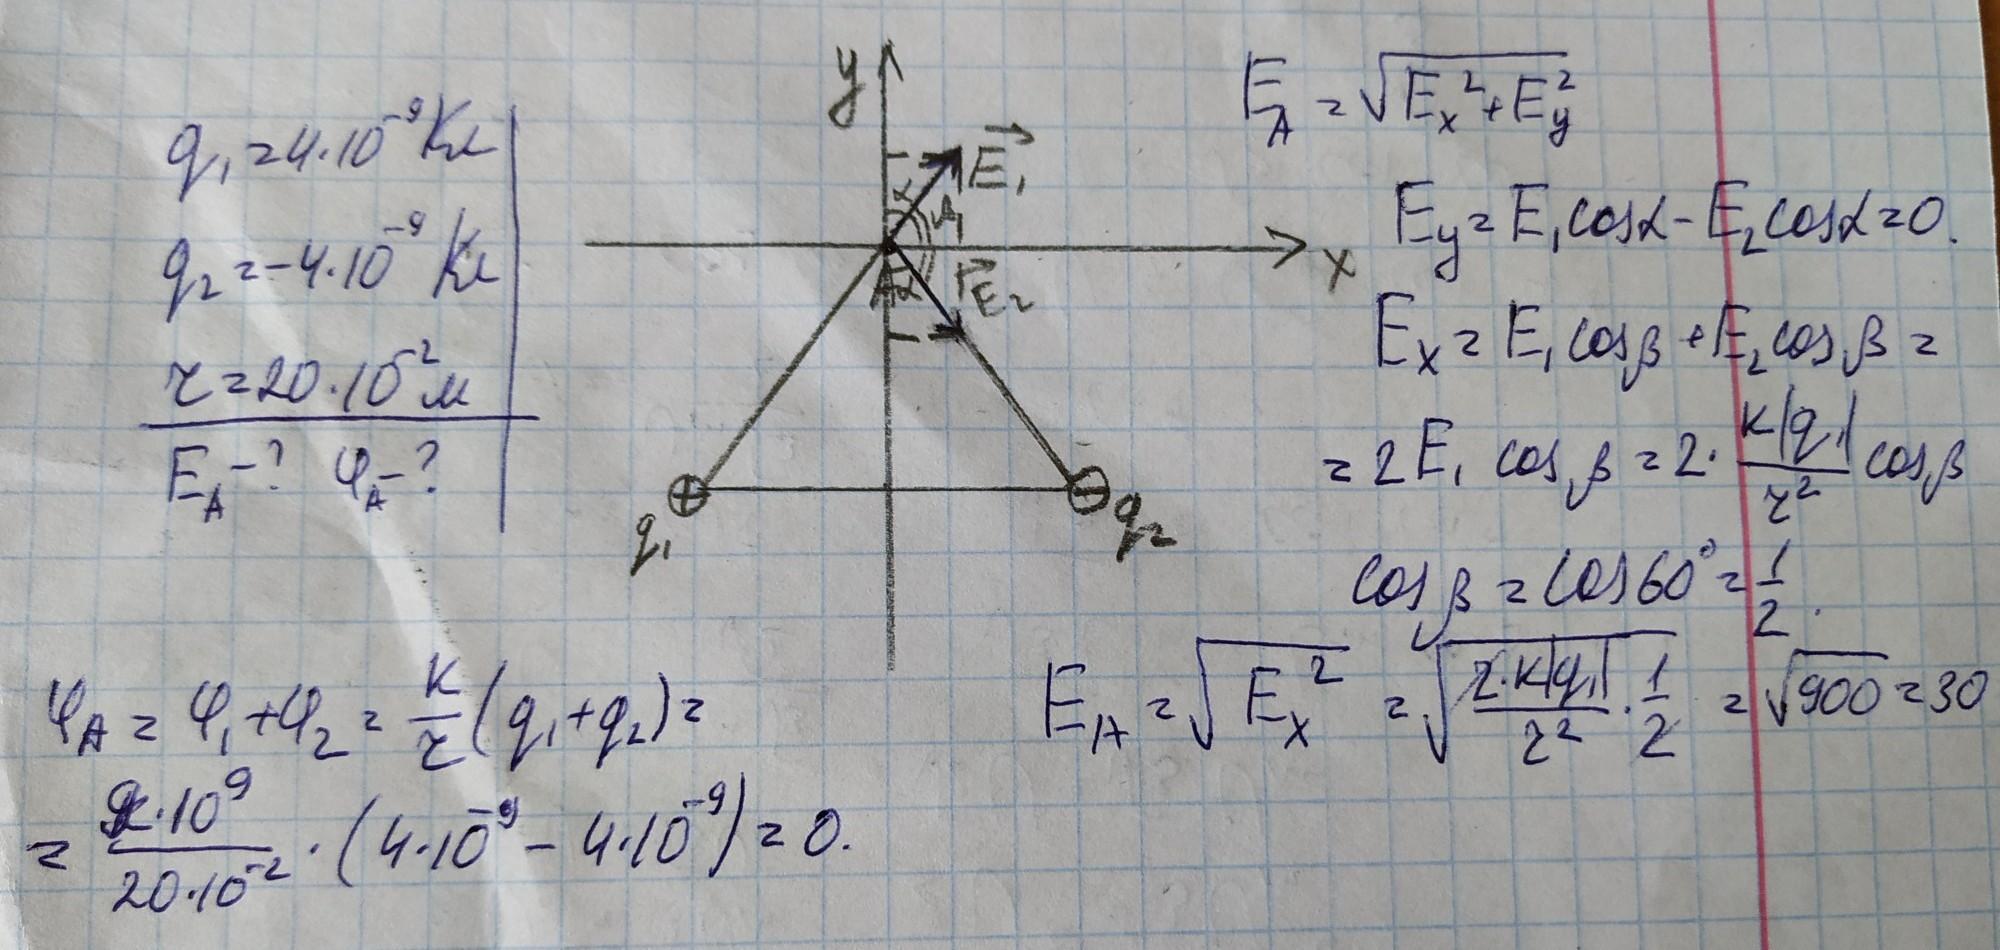 q₁ = 4·10⁻⁹ Кл
q₂ = -4·10⁻⁹ Кл
r = 20·10⁻² м
E_A - ? φ_A - ?
y
E₁
α
β₁
x
A
α
E₂
q₁
q₂
E_A = √(Eₓ² + E_y²)
E_y = E₁cosα - E₂cosα = 0.
Eₓ = E₁cosβ + E₂cosβ =
= 2E₁ cosβ = 2· k|q₁|/r² cosβ
cosβ = cos60° = 1/2.
E_A = √(Eₓ²) = √(2·k|q₁|/r² · 1/2) = √900 = 30
φ_A = φ₁ + φ₂ = k/r (q₁ + q₂) =
= 9·10⁹/20·10⁻² · (4·10⁻⁹ - 4·10⁻⁹) = 0.